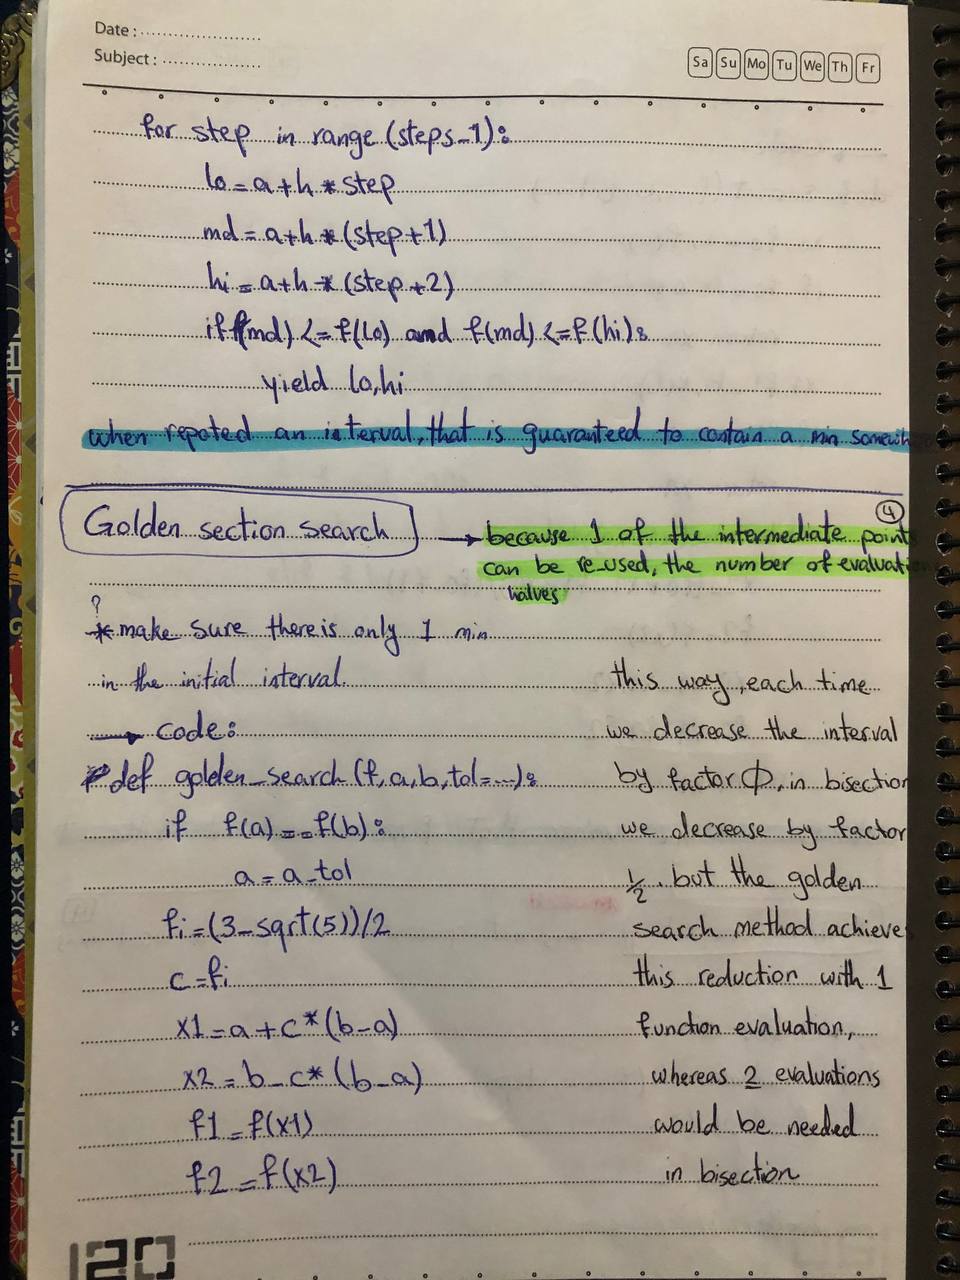 Date :
Subject :
Sa Su Mo Tu We Th Fr
for step in range (steps-1):
lo = a+h * step
md = a+h * (step+1)
hi = a+h * (step+2)
if f(md) <= f(lo) and f(md) <= f(hi):
yield lo, hi
when repoted an interval, that is guaranteed to contain a min
4
Golden section search → because 1 of the intermediate point
can be re-used, the number of
halves
?
* make sure there is only 1 min
in the initial interval.
→ code:
def golden_search (f, a, b, tol=...):
if f(a) == f(b):
a = a-tol
fi = (3-sqrt(5))/2
c = fi
x1 = a + c* (b-a)
x2 = b - c* (b-a)
f1 = f(x1)
f2 = f(x2)
this way, each time
we decrease the interval
by factor Φ, in bisection
we decrease by factor
1/2. but the golden
search method achieve
this reduction with 1
function evaluation,
whereas 2 evaluations
would be needed
in bisection
120